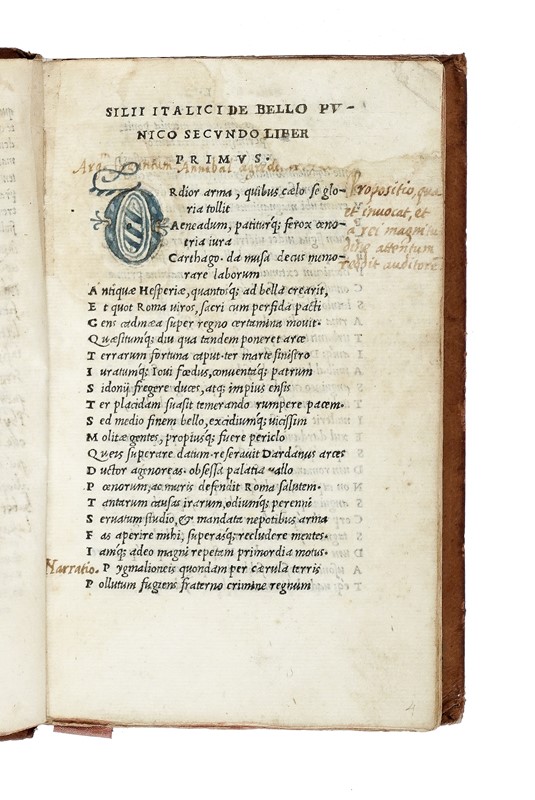 SILII ITALICI DE BELLO PV-
NICO SECVNDO LIBER
PRIMVS.
Annibal
ORdior arma, quibus cælo se glo-
ria tollit
Aeneadum, patiturq; ferox œno-
tria iura
Carthago. da musa decus memo-
rare laborum
Propositio, qua
et inuocat, et
a rei magnitu
dine attentum
reddit auditorē
Antiquæ Hesperiæ, quantosq; ad bella crearit,
Et quot Roma uiros, sacri cum perfida pacti
Gens cadmæa super regno certamina mouit.
Quæsitumq; diu qua tandem poneret arce
Terrarum fortuna caput. ter marte sinistro
Iuratumq; Ioui fœdus, conuentaq; patrum
Sidonij fregere duces, atq; impius ensis
Ter placidam suasit temerando rumpere pacem.
Sed medio finem bello, excidiumq; uicissim
Molitæ gentes, propiusq; fuere periclo
Queis superare datum. reserauit Dardanus arces
Ductor agenoreas. obsessa palatia uallo
Pœnorum, ac muris defendit Roma salutem.
Tantarum causas irarum, odiumq; perenni
Seruatum studio, & mandata nepotibus arma
Fas aperire mihi, superasq; recludere mentes.
Iamq; adeo magni repetam primordia motus.
Narratio. Pygmalioneis quondam per cærula terris
Pollutum fugiens fraterno crimine regnum
4